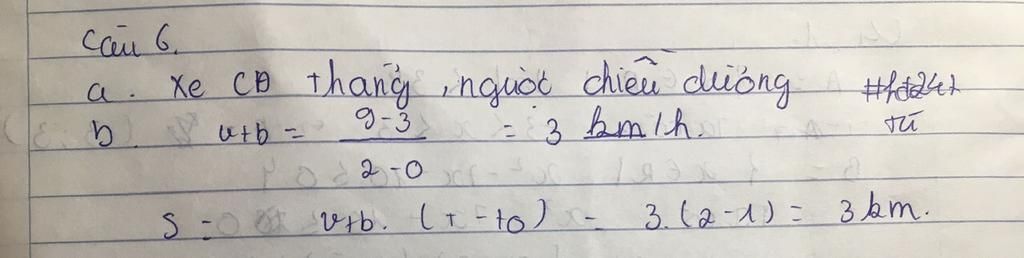 Câu 6.
a. Xe CĐ thẳng, ngược chiều dương
b. vtb = 9-3 / 2-0 = 3 km/h. từ
S = vtb. (t - t0) = 3.(2-1) = 3 km.